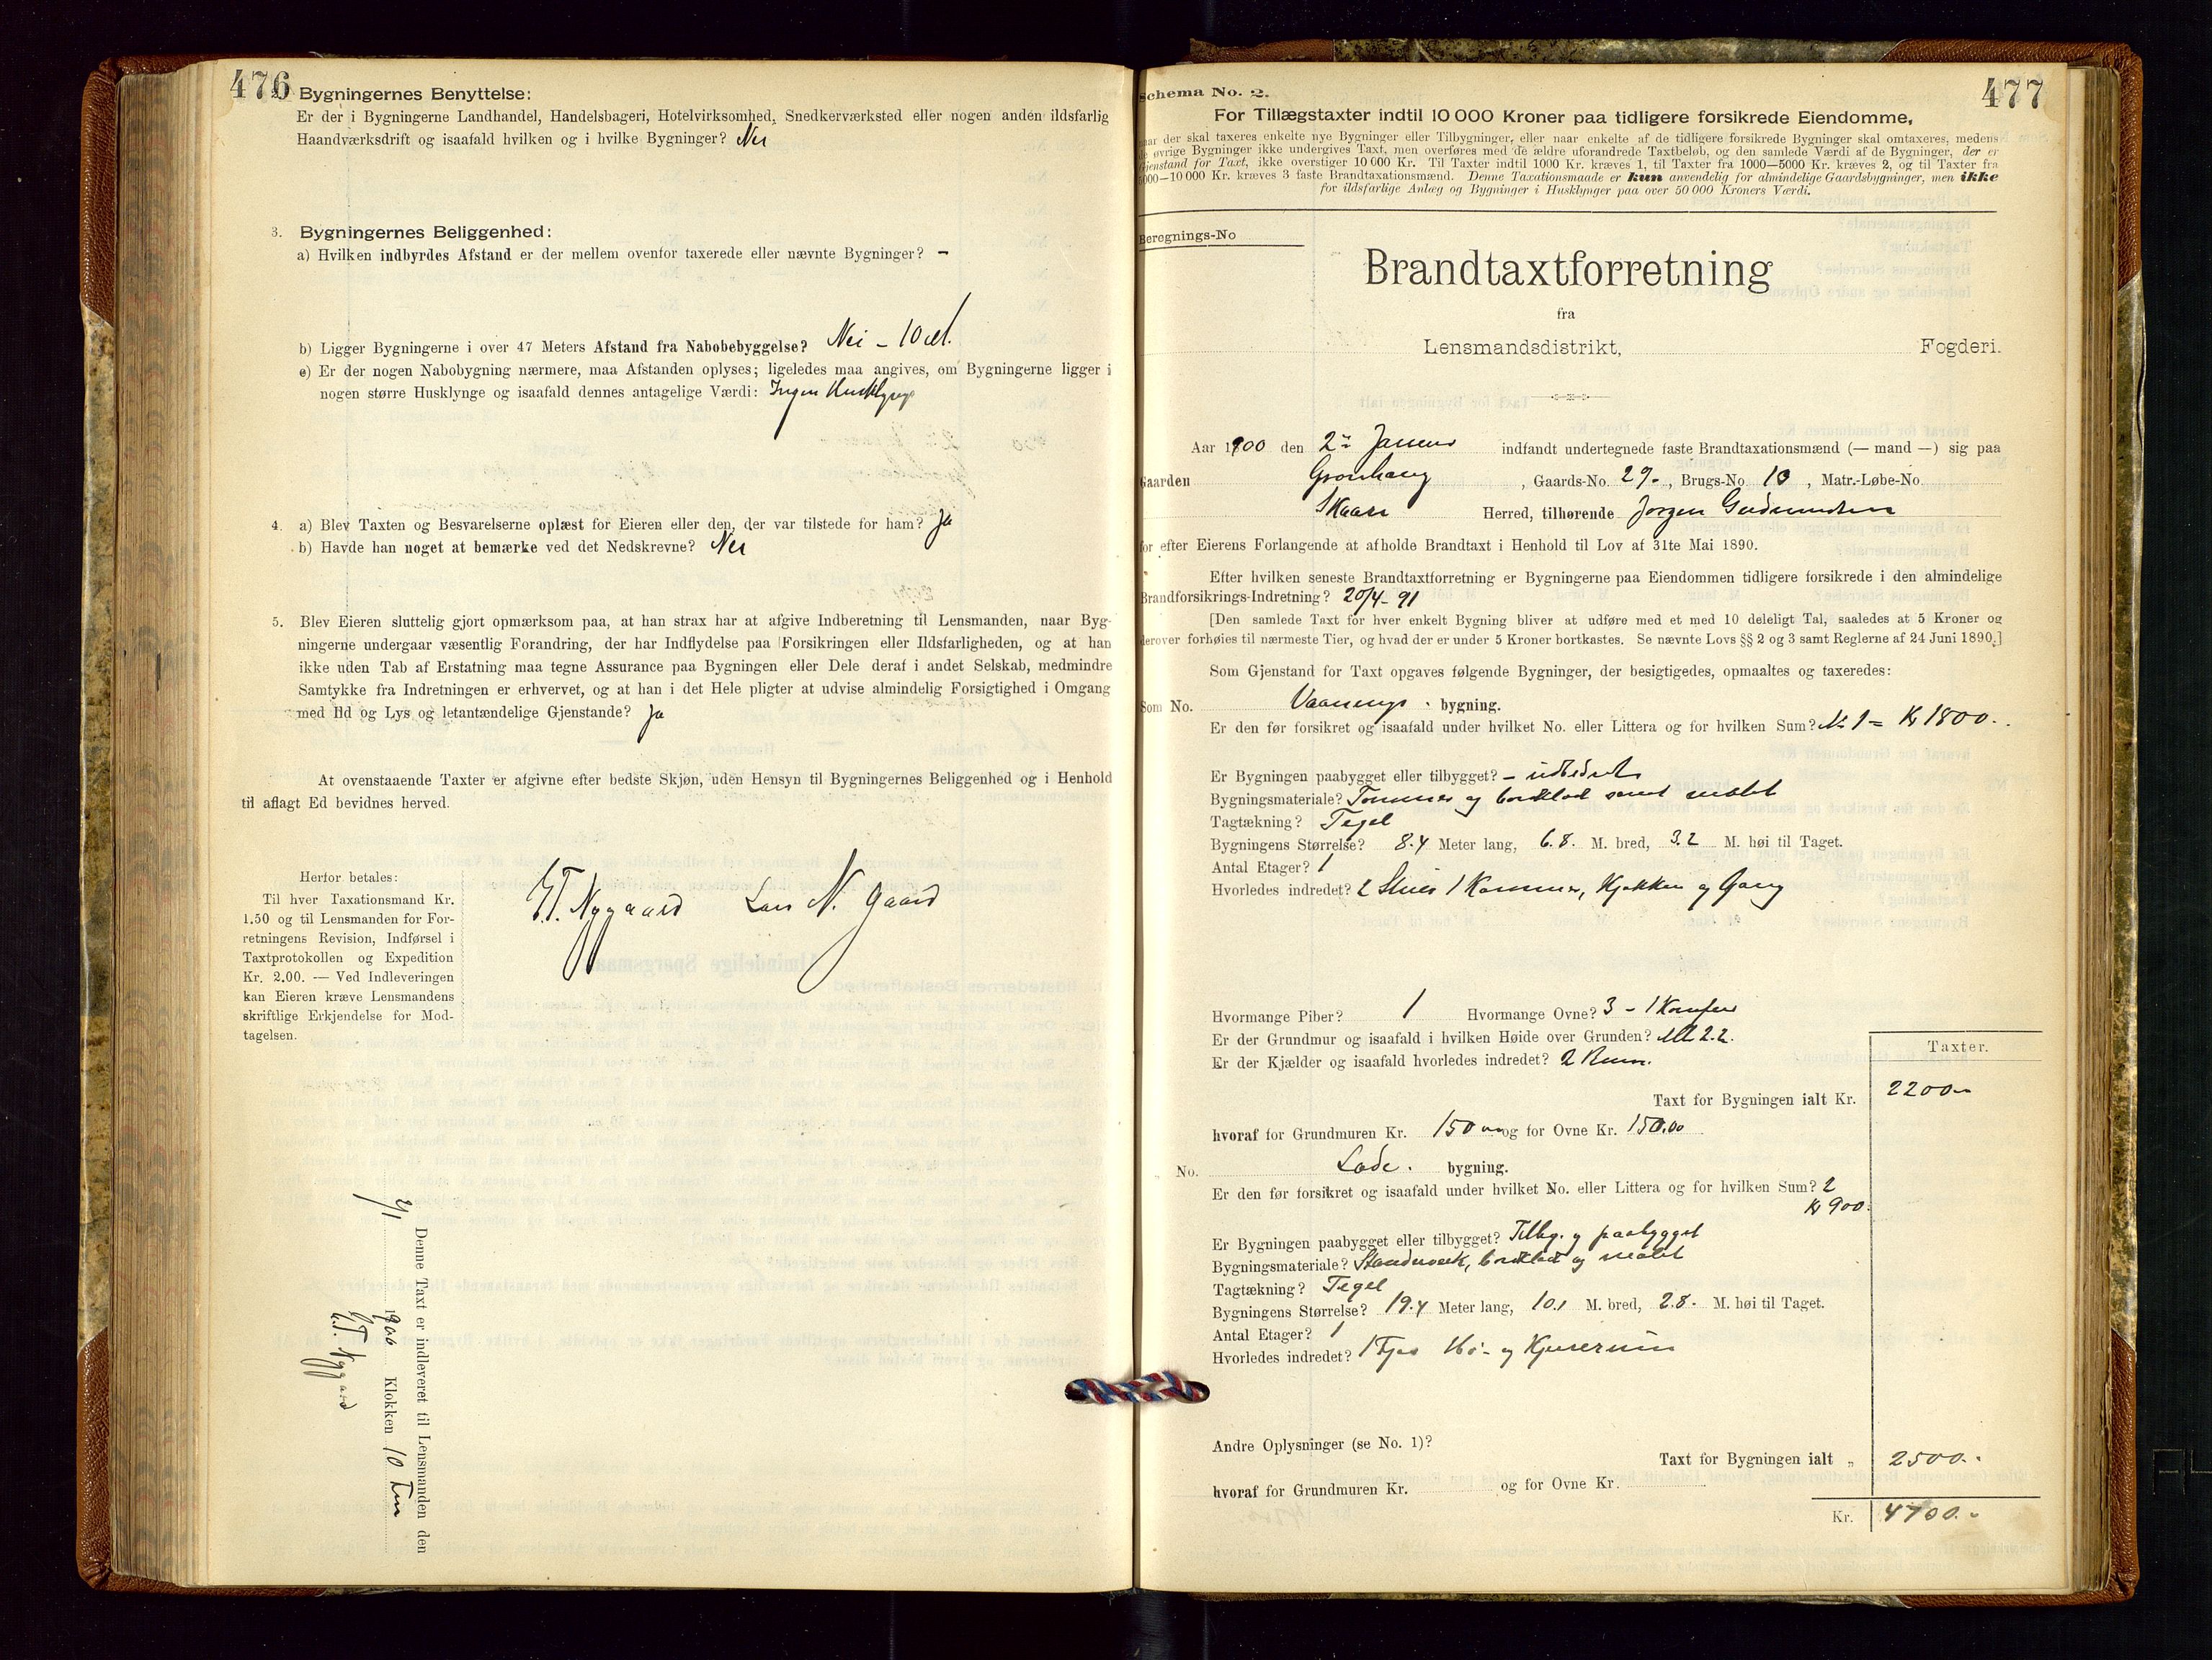 476
2. Bygningernes Benyttelse:
Er der i Bygningerne Landhandel, Handelsbageri, Hotelvirksomhed, Snedkerværksted eller nogen anden ildsfarlig
Haandværksdrift og isaafald hvilken og i hvilke Bygninger? Nei
3. Bygningernes Beliggenhed:
a) Hvilken indbyrdes Afstand er der mellem ovenfor taxerede eller nævnte Bygninger? –
b) Ligger Bygningerne i over 47 Meters Afstand fra Nabobebyggelse? Nei – 10 M.
c) Er der nogen Nabobygning nærmere, maa Afstanden oplyses; ligeledes maa angives, om Bygningerne ligger i
nogen større Husklynge og isaafald dennes antagelige Værdi: Ingen Husklynge
4. a) Blev Taxten og Besvarelserne oplæst for Eieren eller den, der var tilstede for ham? Ja
b) Havde han noget at bemærke ved det Nedskrevne? Nei
5. Blev Eieren sluttelig gjort opmærksom paa, at han strax har at afgive Indberetning til Lensmanden, naar Byg-
ningerne undergaar væsentlig Forandring, der har Indflydelse paa Forsikringen eller Ildsfarligheden, og at han
ikke uden Tab af Erstatning maa tegne Assurance paa Bygningen eller Dele deraf i andet Selskab, medmindre
Samtykke fra Indretningen er erhvervet, og at han i det Hele pligter at udvise almindelig Forsigtighed i Omgang
med Ild og Lys og letantændelige Gjenstande? Ja
At ovenstaaende Taxter er afgivne efter bedste Skjøn, uden Hensyn til Bygningernes Beliggenhed og i Henhold
til aflagt Ed bevidnes herved.
Herfor betales:
Til hver Taxationsmand Kr.
1.50 og til Lensmanden for For-
retningens Revision, Indførsel i
Taxtprotokollen og Expedition
Kr. 2.00. — Ved Indleveringen
kan Eieren kræve Lensmandens
skriftlige Erkjendelse for Mod-
tagelsen.
T. Nygaard Lars N. Gaard
Denne Taxt er indleveret til Lensmanden den
2/1 1900 Klokken 10 Fm
T. Nygaard
477
Schema No. 2.
For Tillægstaxter indtil 10 000 Kroner paa tidligere forsikrede Eiendomme,
naar der skal taxeres enkelte nye Bygninger eller Tilbygninger, eller naar enkelte af de tidligere forsikrede Bygninger skal omtaxeres, medens
de øvrige Bygninger ikke undergives Taxt, men overføres med de ældre uforandrede Taxtbeløb, og den samlede Værdi af de Bygninger, der er
Gjenstand for Taxt, ikke overstiger 10 000 Kr. Til Taxter indtil 1000 Kr. kræves 1, til Taxter fra 1000—5000 Kr. kræves 2, og til Taxter fra
5000—10 000 Kr. kræves 3 faste Brandtaxationsmænd. Denne Taxationsmaade er kun anvendelig for almindelige Gaardsbygninger, men ikke
for ildsfarlige Anlæg og Bygninger i Husklynger paa over 50 000 Kroners Værdi.
Beregnings-No
Brandtaxtforretning
fra
Lensmandsdistrikt, Fogderi.
Aar 1900 den 2 indfandt undertegnede faste Brandtaxationsmænd (— mand —) sig paa
Gaarden Gronhaug, Gaards-No. 29-, Brugs-No. 10, Matr.-Løbe-No
Skaare Herred, tilhørende Jorgen Gudmundsen
for efter Eierens Forlangende at afholde Brandtaxt i Henhold til Lov af 31te Mai 1890.
Efter hvilken seneste Brandtaxtforretning er Bygningerne paa Eiendommen tidligere forsikrede i den almindelige
Brandforsikrings-Indretning? 20/4-91
[Den samlede Taxt for hver enkelt Bygning bliver at udføre med et med 10 deleligt Tal, saaledes at 5 Kroner og
derover forhøies til nærmeste Tier, og hvad der er under 5 Kroner bortkastes. Se nævnte Lovs §§ 2 og 3 samt Reglerne af 24 Juni 1890.]
Som Gjenstand for Taxt opgaves følgende Bygninger, der besigtigedes, opmaaltes og taxeredes:
Som No. Vaanings bygning.
Er den før forsikret og isaafald under hvilket No. eller Littera og for hvilken Sum? No 1 = Kr 1800.
Er Bygningen paabygget eller tilbygget? – udbedret
Bygningsmateriale? Tommer og bordklæd samt malet
Tagtækning? Tegel
Bygningens Størrelse? 8.4 Meter lang, 6.8. M. bred, 3.2 M. høi til Taget.
Antal Etager? 1
Hvorledes indredet? 2 Stuer 1 Kammer, Kjøkken og Gang
Hvormange Piber? 1 Hvormange Ovne? 3 – 1 Komfur
Er der Grundmur og isaafald i hvilken Høide over Grunden? M 2.2.
Er der Kjælder og isaafald hvorledes indredet? 2 Rum.
Taxter.
Taxt for Bygningen ialt Kr. 2200–
hvoraf for Grundmuren Kr. 150 og for Ovne Kr. 150.00
No. Lade. bygning.
Er den før forsikret og isaafald under hvilket No. eller Littera og for hvilken Sum? 2
Kr 900.
Er Bygningen paabygget eller tilbygget? Tilbg. og paabygget
Bygningsmateriale? Standverk, bordklæd og malet
Tagtækning? Tegel
Bygningens Størrelse? 19.4 Meter lang, 10.1 M. bred, 2.8. M. høi til Taget.
Antal Etager? 1
Hvorledes indredet? 1 Fjøs Hø- og Kjørerum
Andre Oplysninger (se No. 1)?
Taxt for Bygningen ialt „ 2500.-
hvoraf for Grundmuren Kr. og for Ovne Kr.
Kr. 4700.-